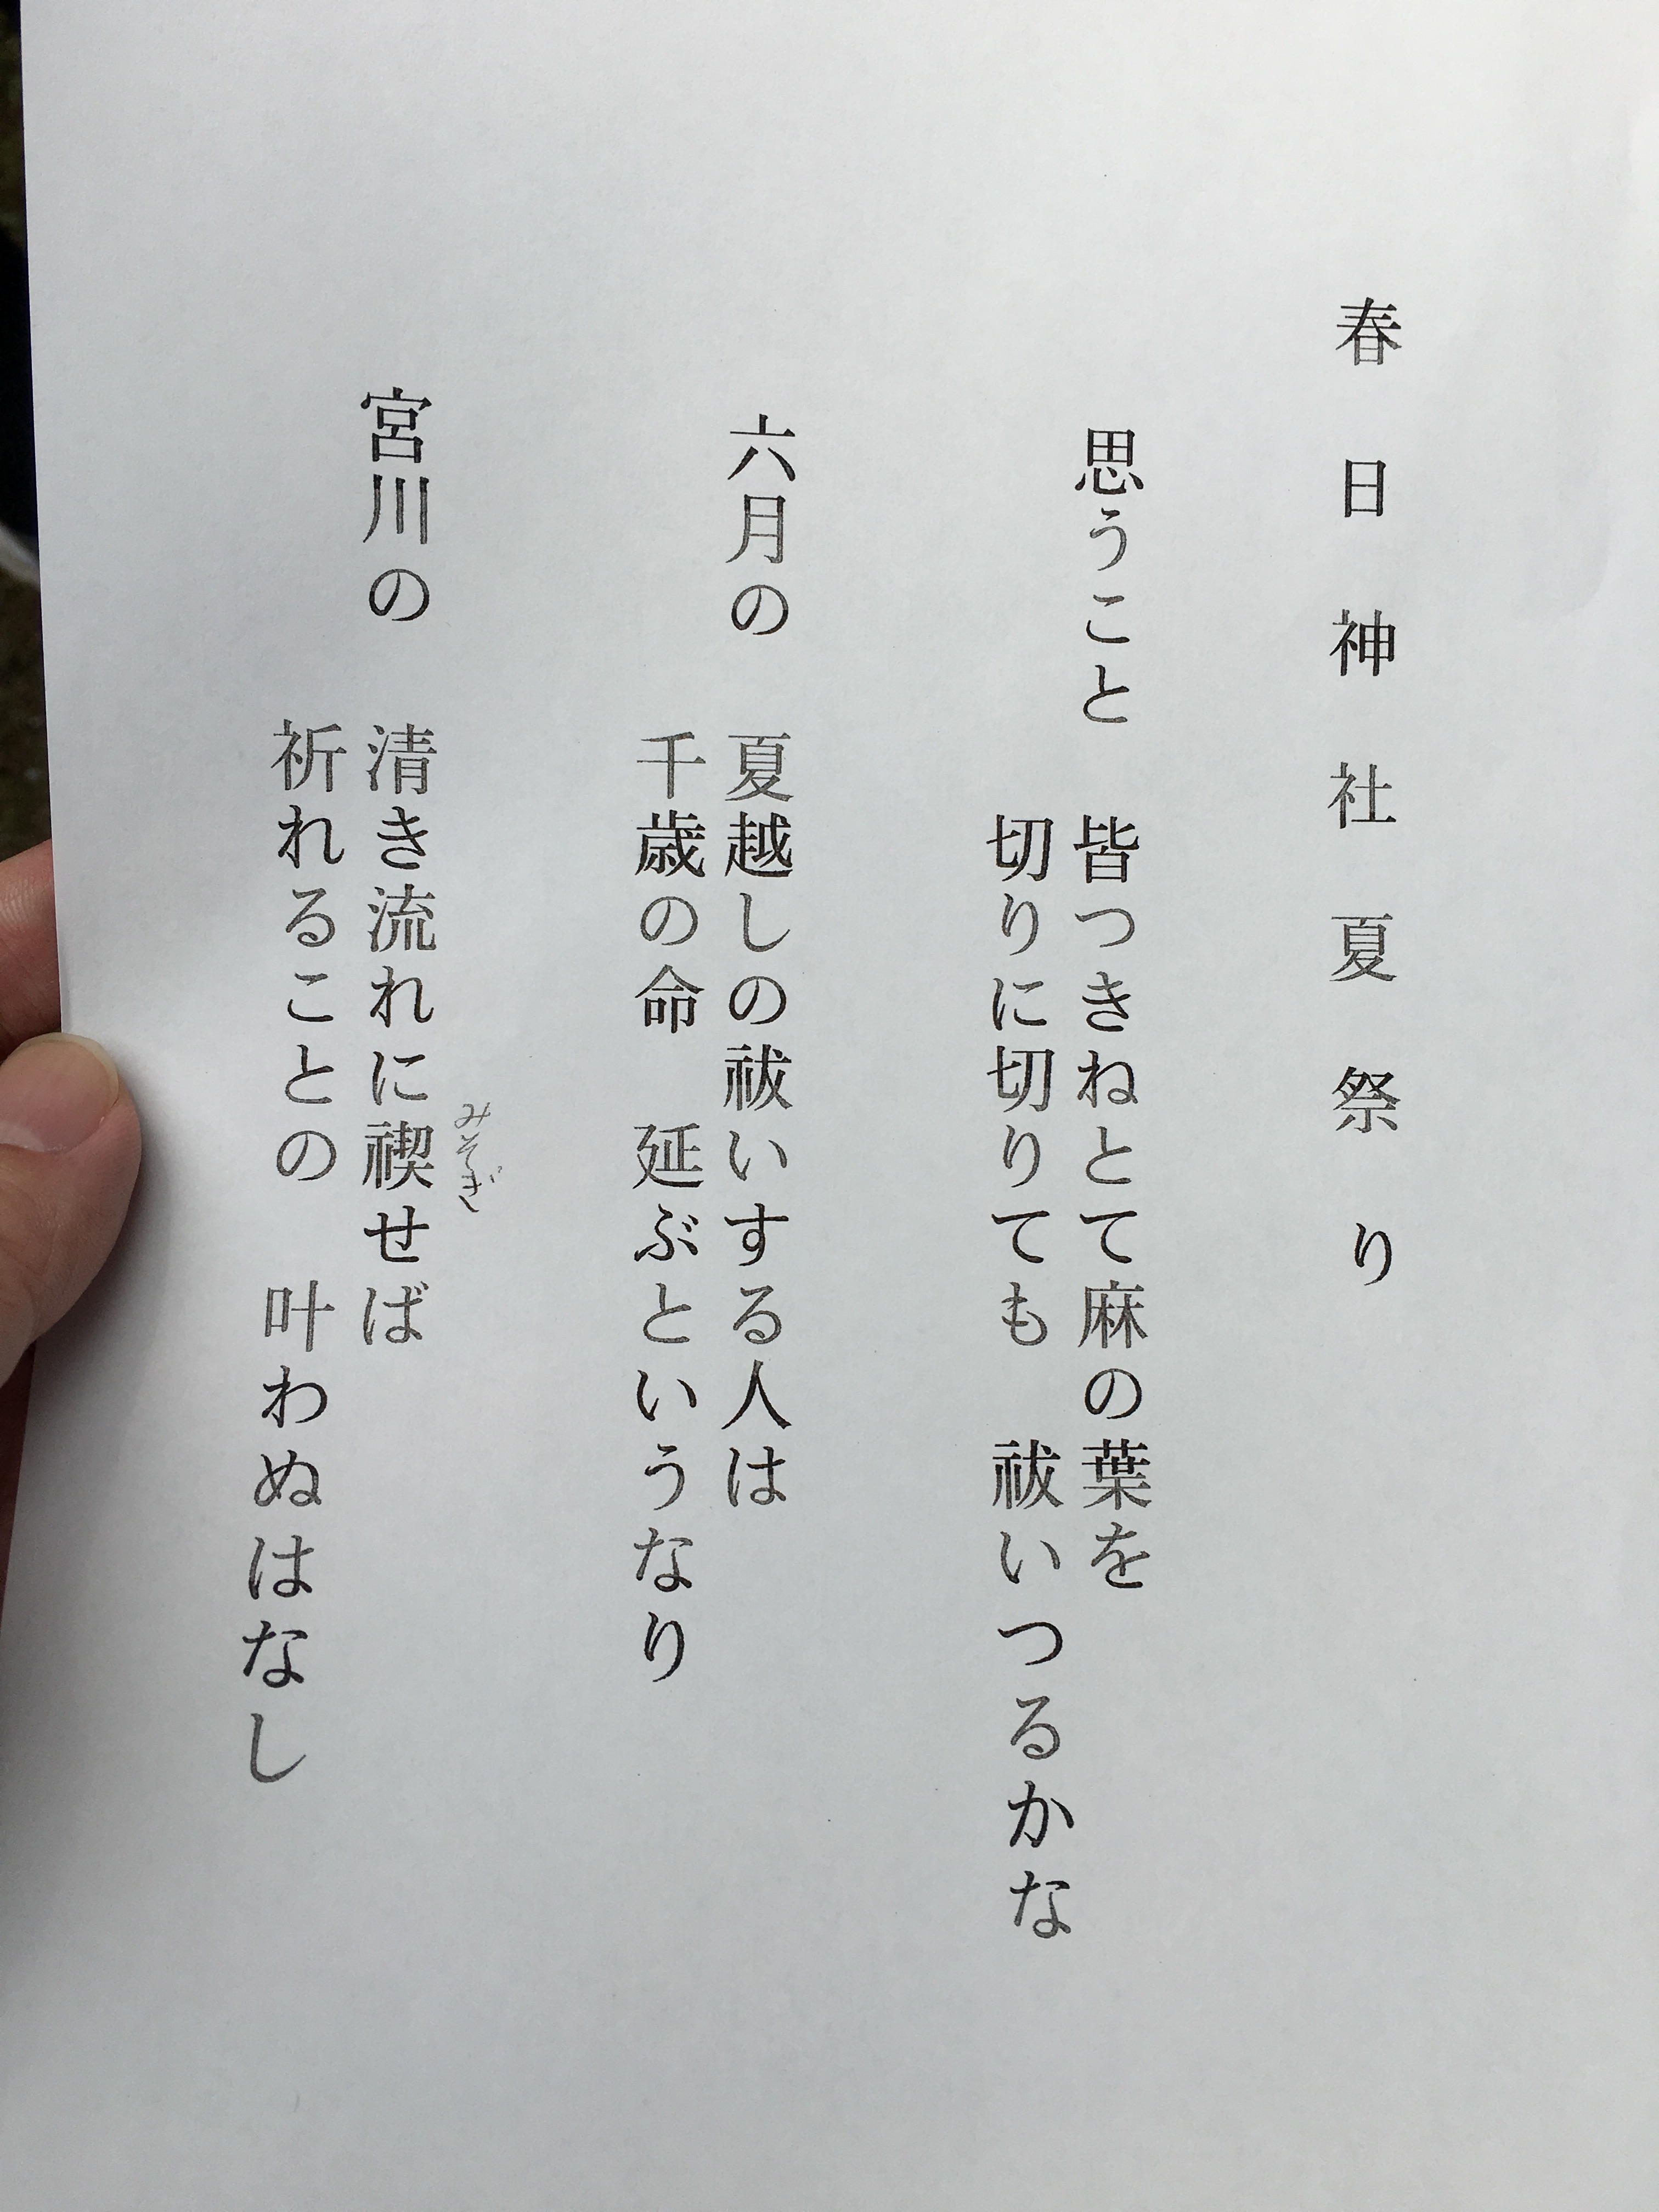 春日神社夏祭り
思うこと　皆つきねとて麻の葉を
切りに切りても　祓いつるかな
六月の　夏越しの祓いする人は
千歳の命　延ぶというなり
宮川の　清き流れに禊せば
みそぎ
祈れることの　叶わぬはなし